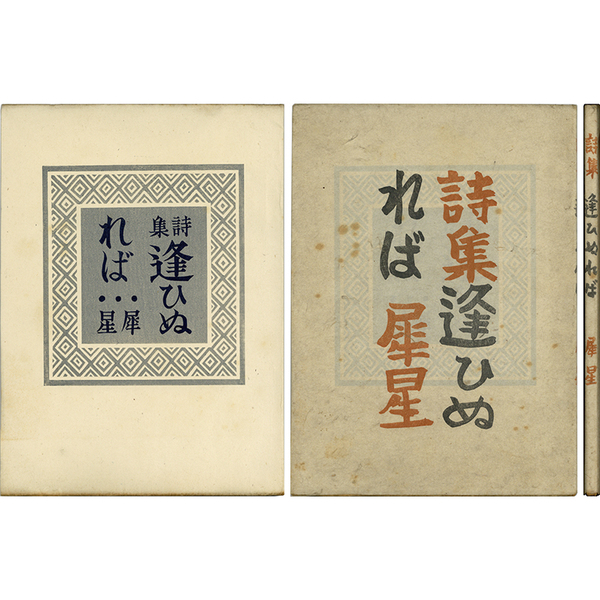 詩集
逢ひぬ
れば…
犀星
詩集逢ひぬ
れば 犀星
詩集 逢ひぬれば 犀星